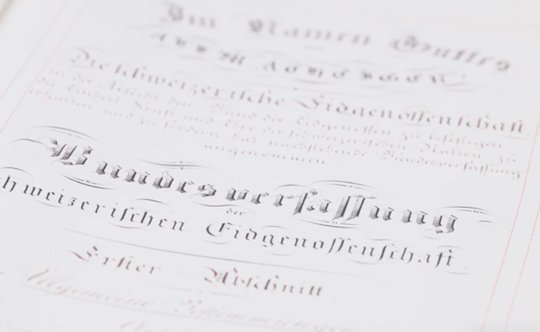 Im Namen Gottes
des Allmächtigen!
Die schweizerische Eidgenossenschaft
in der Absicht, den Bund der Eidgenossen zu befestigen,
die Einheit, Kraft und Ehre der schweizerischen Nation zu
erhalten und zu fördern, hat nachstehende Bundesverfassung
angenommen:
Bundesverfassung
der
chweizerischen Eidgenossenschaft.
Erster Abschnitt
Allgemeine Bestimmungen